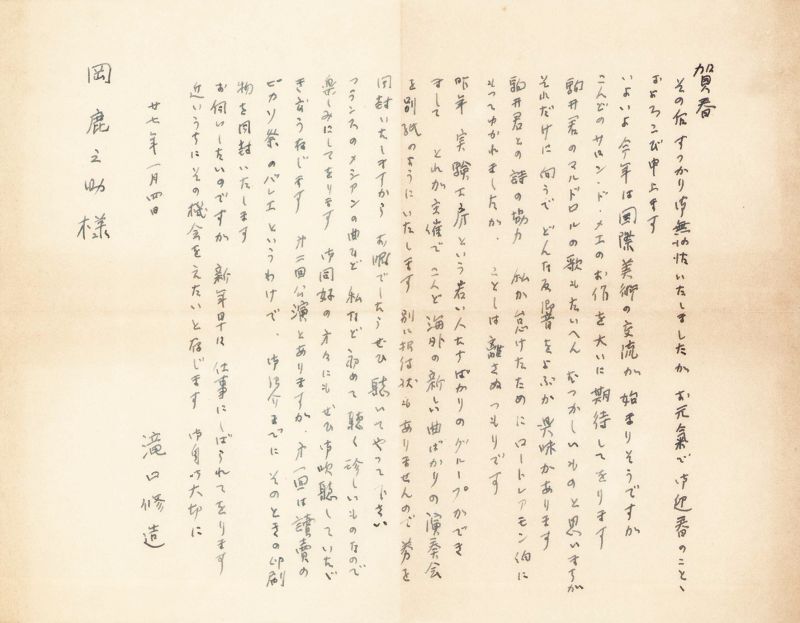 賀春
その后すっかり御無沙汰いたしましたが お元氣で御迎春のことゝ
およろこび申上ます
いよいよ今年は国際美術の交流が始まりそうですが
こんどのサロン・ド・メエのお作を大いに期待してをります
駒井君のマルドロルの歌もたいへんむつかしいものと思いますが
それだけに向うでどんな反響をよぶか興味があります
駒井君との詩の協力 私が怠けたためにロートレアモン伯に
もってゆかれましたが、ことしは離さぬつもりです
昨年 実験工房という若い人たちばかりのグループができ
まして それが主催でこんど海外の新しい曲ばかりの演奏会
を別紙のようにいたします 別に招待状もありませんので 券を
同封いたしますから お暇でしたらぜひ聴いてやって下さい
フランスのメシアンの曲など 私など初めて聴く珍しいものなので
楽しみにしてをります 御同好の方々にもぜひ御吹聴していたゞ
き度う存じます 第二回公演とありますが、第一回は讀賣の
ピカソ祭のバレエというわけで、御紹介までに そのときの印刷
物を同封いたします
お伺いしたいのですが 新年早々 仕事にしばられてをります
近いうちにその機会をえたいと存じます 御身御大切に
瀧口修造
廿七年一月四日
岡鹿之助様